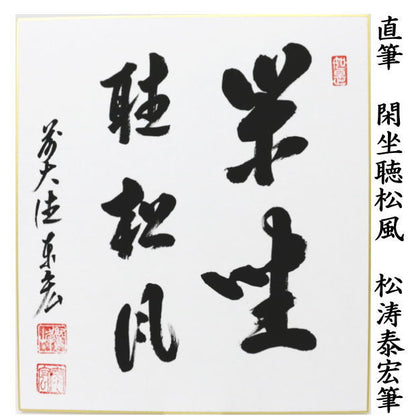 直筆 閑坐聴松風 松涛泰宏筆
閑坐
聴松風
前大徳泰宏